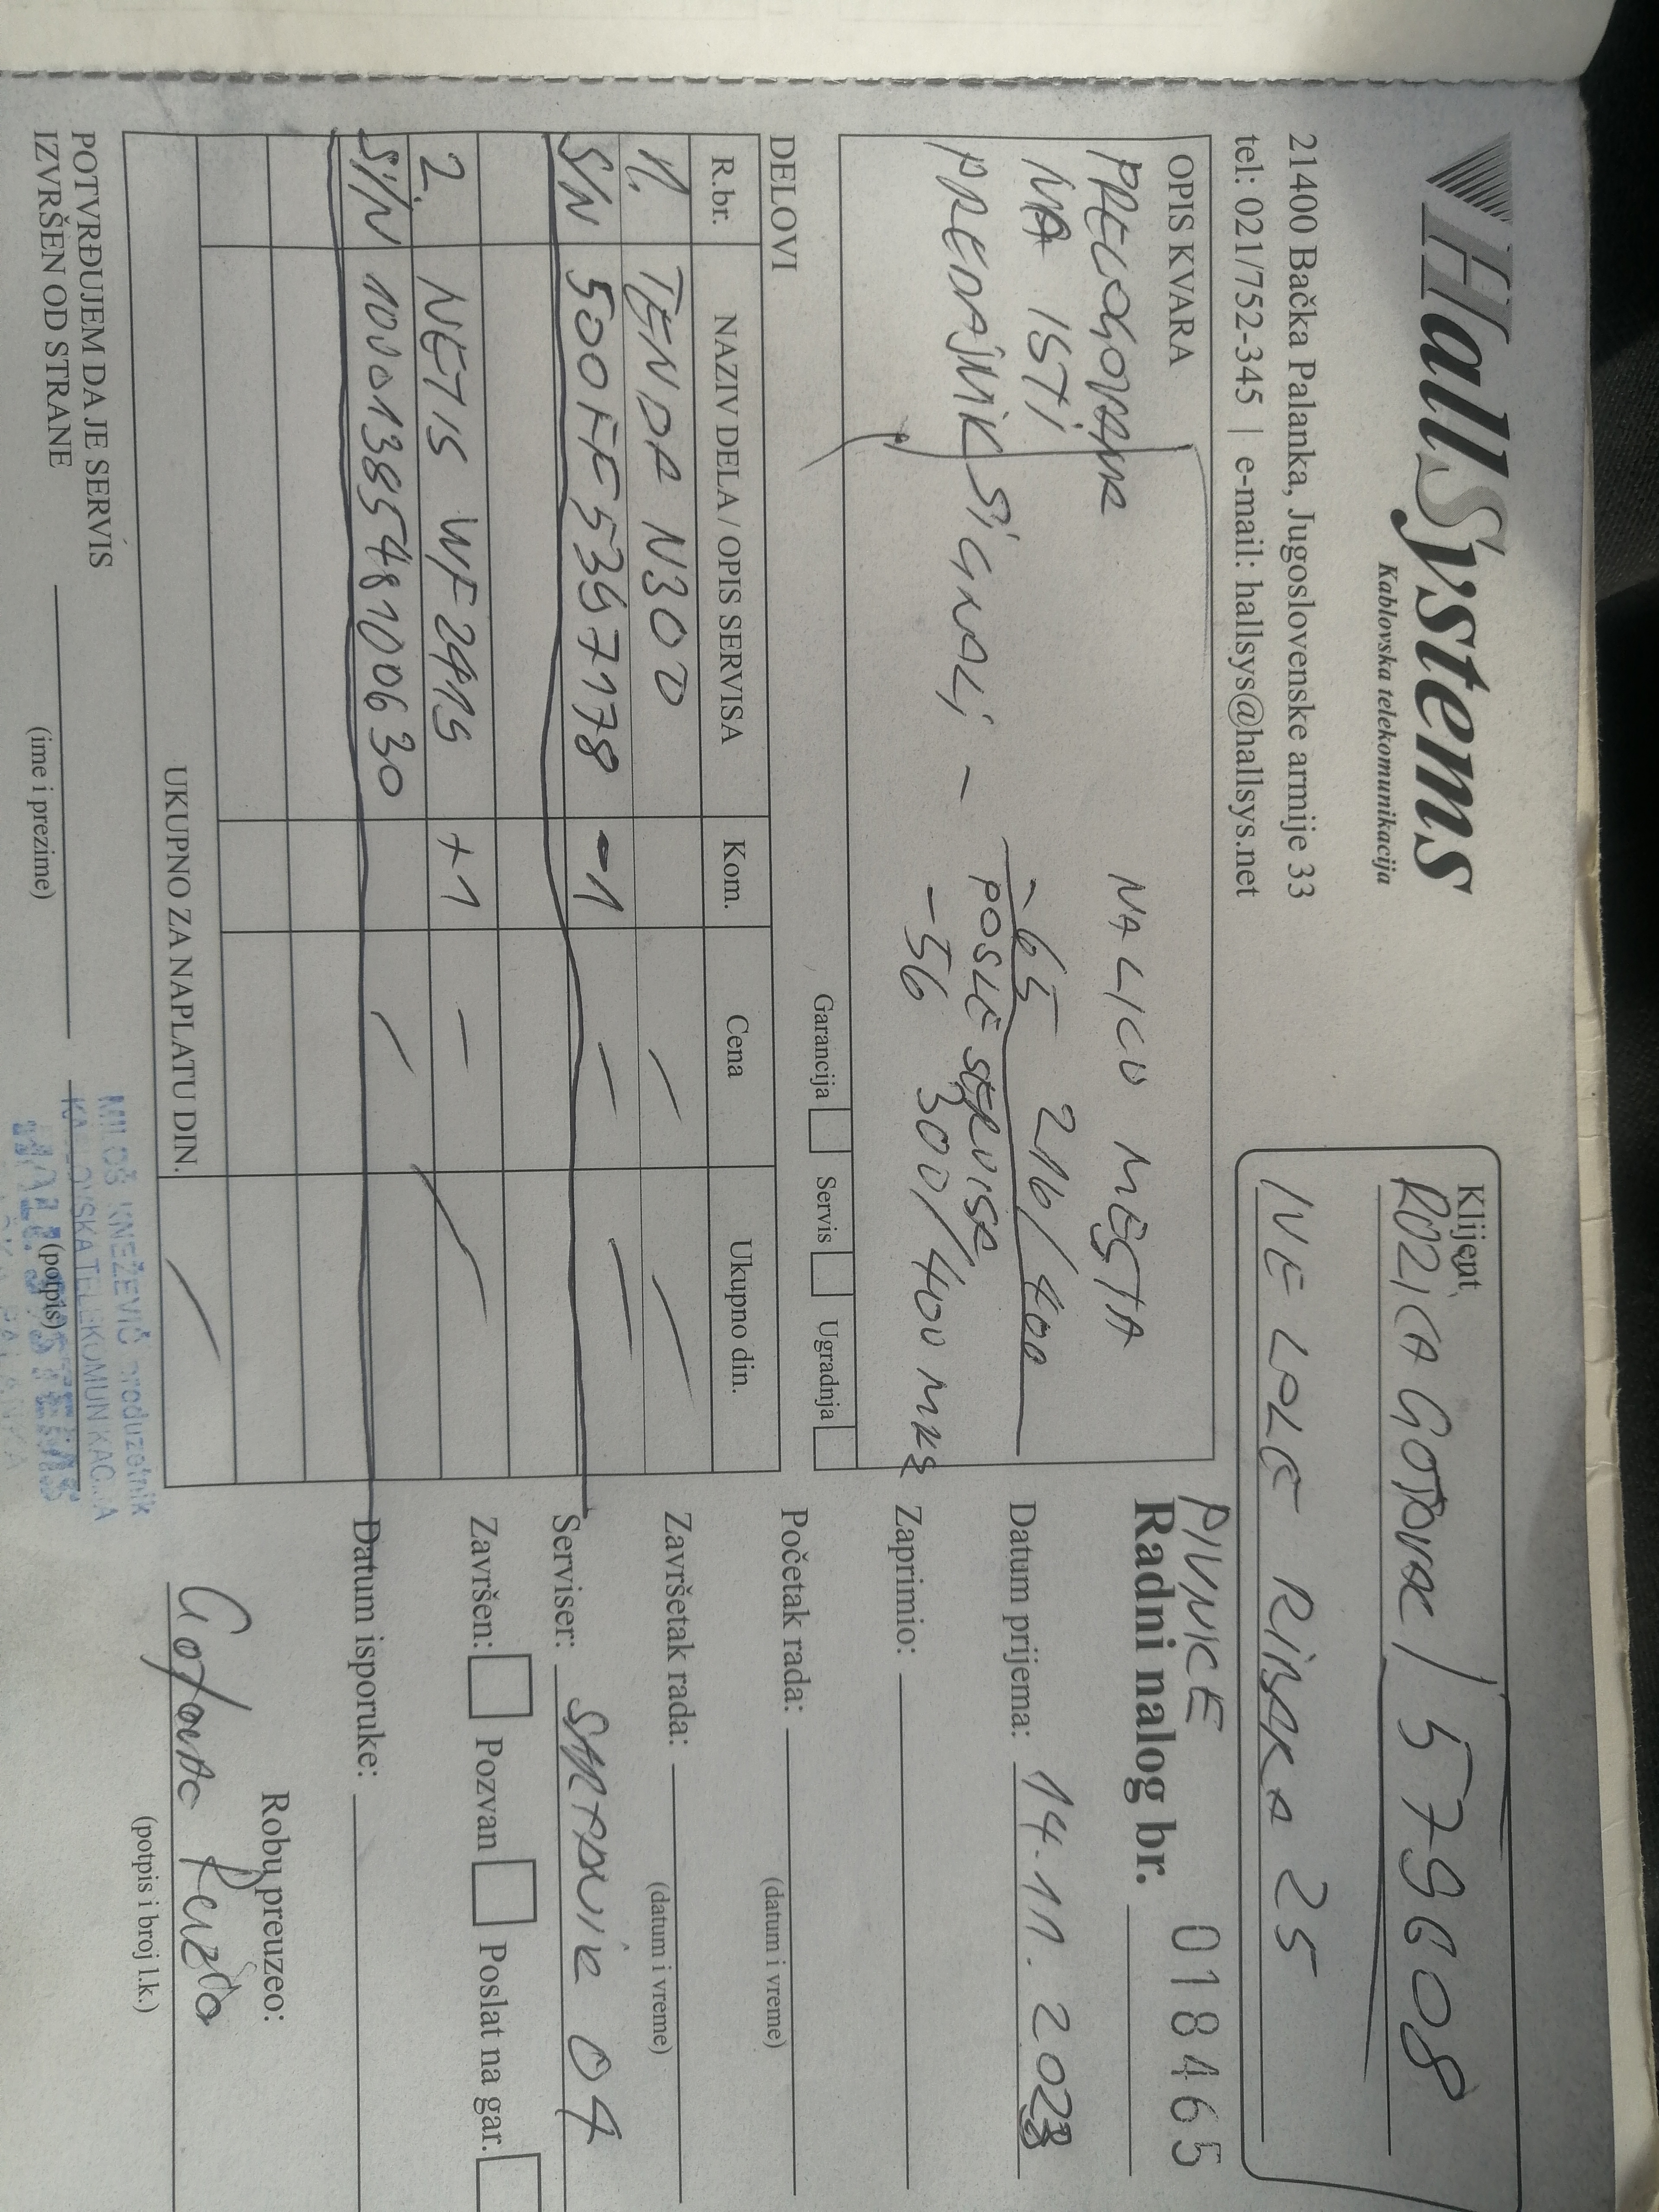 HallSystems
Kablovska telekomunikacija
21400 Bačka Palanka, Jugoslovenske armije 33
tel: 021/752-345 | e-mail: hallsys@hallsys.net
Klijent
ROZICA GOTOVAC / 579608
IVE LOLE RIBARA 25
PIVNICE
Radni nalog br. 018465
OPIS KVARA
PRELOGOVANA NA LICU MESTA
NA ISTI
PREDAJNIK SIGNALI -
-65 216/400
POSLE SERVISA
-56 300/400 MKS
Garancija Servis Ugradnja
Datum prijema: 14.11.2023
Zaprimio:
Početak rada:
(datum i vreme)
Završetak rada:
(datum i vreme)
Serviser: 04
Završen: Pozvan Poslat na gar.
Datum isporuke:
DELOVI
R.br. NAZIV DELA / OPIS SERVISA Kom. Cena Ukupno din.
1. TENDA N300
S/N 500FF5397178 -1
2. NETIS WF2419 +1
S/N 100013895487100630
UKUPNO ZA NAPLATU DIN.
POTVRĐUJEM DA JE SERVIS
IZVRŠEN OD STRANE
(ime i prezime)
(potpis)
MILOŠ KNEŽEVIĆ preduzetnik
KABLOVSKA TELEKOMUNIKACIJA
Robu preuzeo:
Gotovac
(potpis i broj l.k.)